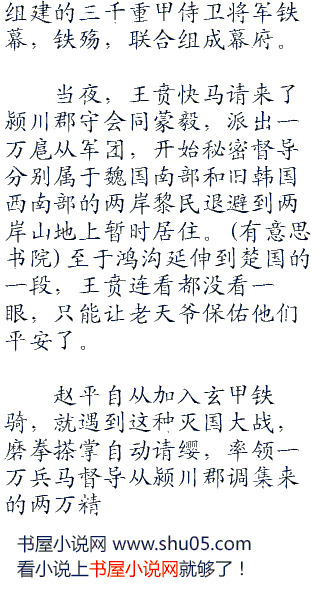 组建的三千重甲侍卫将军铁
幕，铁殇，联合组成幕府。
当夜，王贲快马请来了
颍川郡守会同蒙毅，派出一
万扈从军团，开始秘密督导
分别属于魏国南部和旧韩国
西南部的两岸黎民退避到两
岸山地上暂时居住。(有意思
书院)至于鸿沟延伸到楚国的
一段，王贲连看都没看一
眼，只能让老天爷保佑他们
平安了。
赵平自从加入玄甲铁
骑，就遇到这种灭国大战，
磨拳搽掌自动请缨，率领一
万兵马督导从颍川郡调集来
的两万精
书屋小说网 www.shu05.com
看小说上书屋小说网就够了！